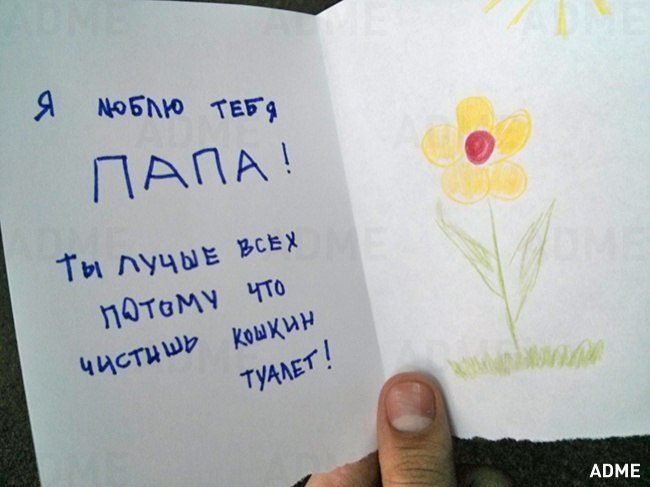 Я люблю тебя
ПАПА!
ты лучше всех
потому что
чистишь кошкин
туалет!
ADME